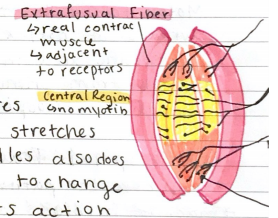 Extrafusual Fiber
↳ real contrac
muscle
↳ adjacent
to receptors
Central Region
↳ no myofib
stretches
also does
to change
action